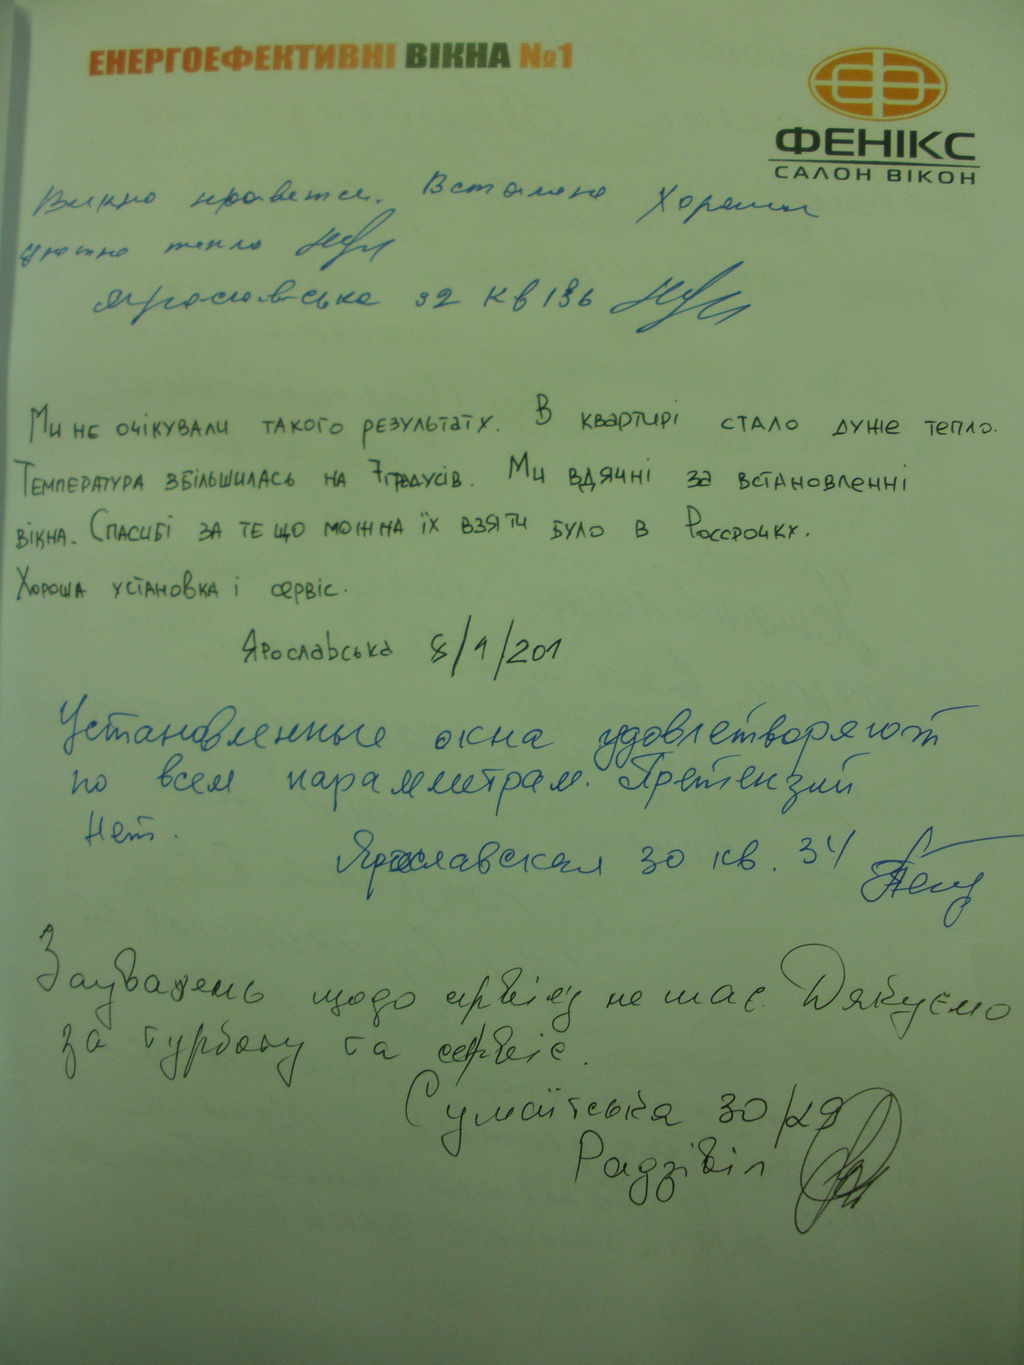 ЕНЕРГОЕФЕКТИВНІ ВІКНА №1
ФЕНІКС
САЛОН ВІКОН
Вікно нравется. Встановлено Хорошо
уютно тепло
Ярославська 32 кв 136
Ми не очікували такого результату. В квартирі стало дуже тепло.
Температура збільшилась на 7градусів. Ми вдячні за встановленні
вікна. Спасибі за те що можна їх взяти було в Россрочку.
Хороша установка і сервіс.
Ярославська 8/1/201
Установленные окна удовлетворяют
по всем параметрам. Претензий
Нет.
Ярославская 30 кв. 34
Зауважень щодо сервісу не має. Дякуємо
за турботу та сервіс.
Сумаїтська 30/29
Радзівіл